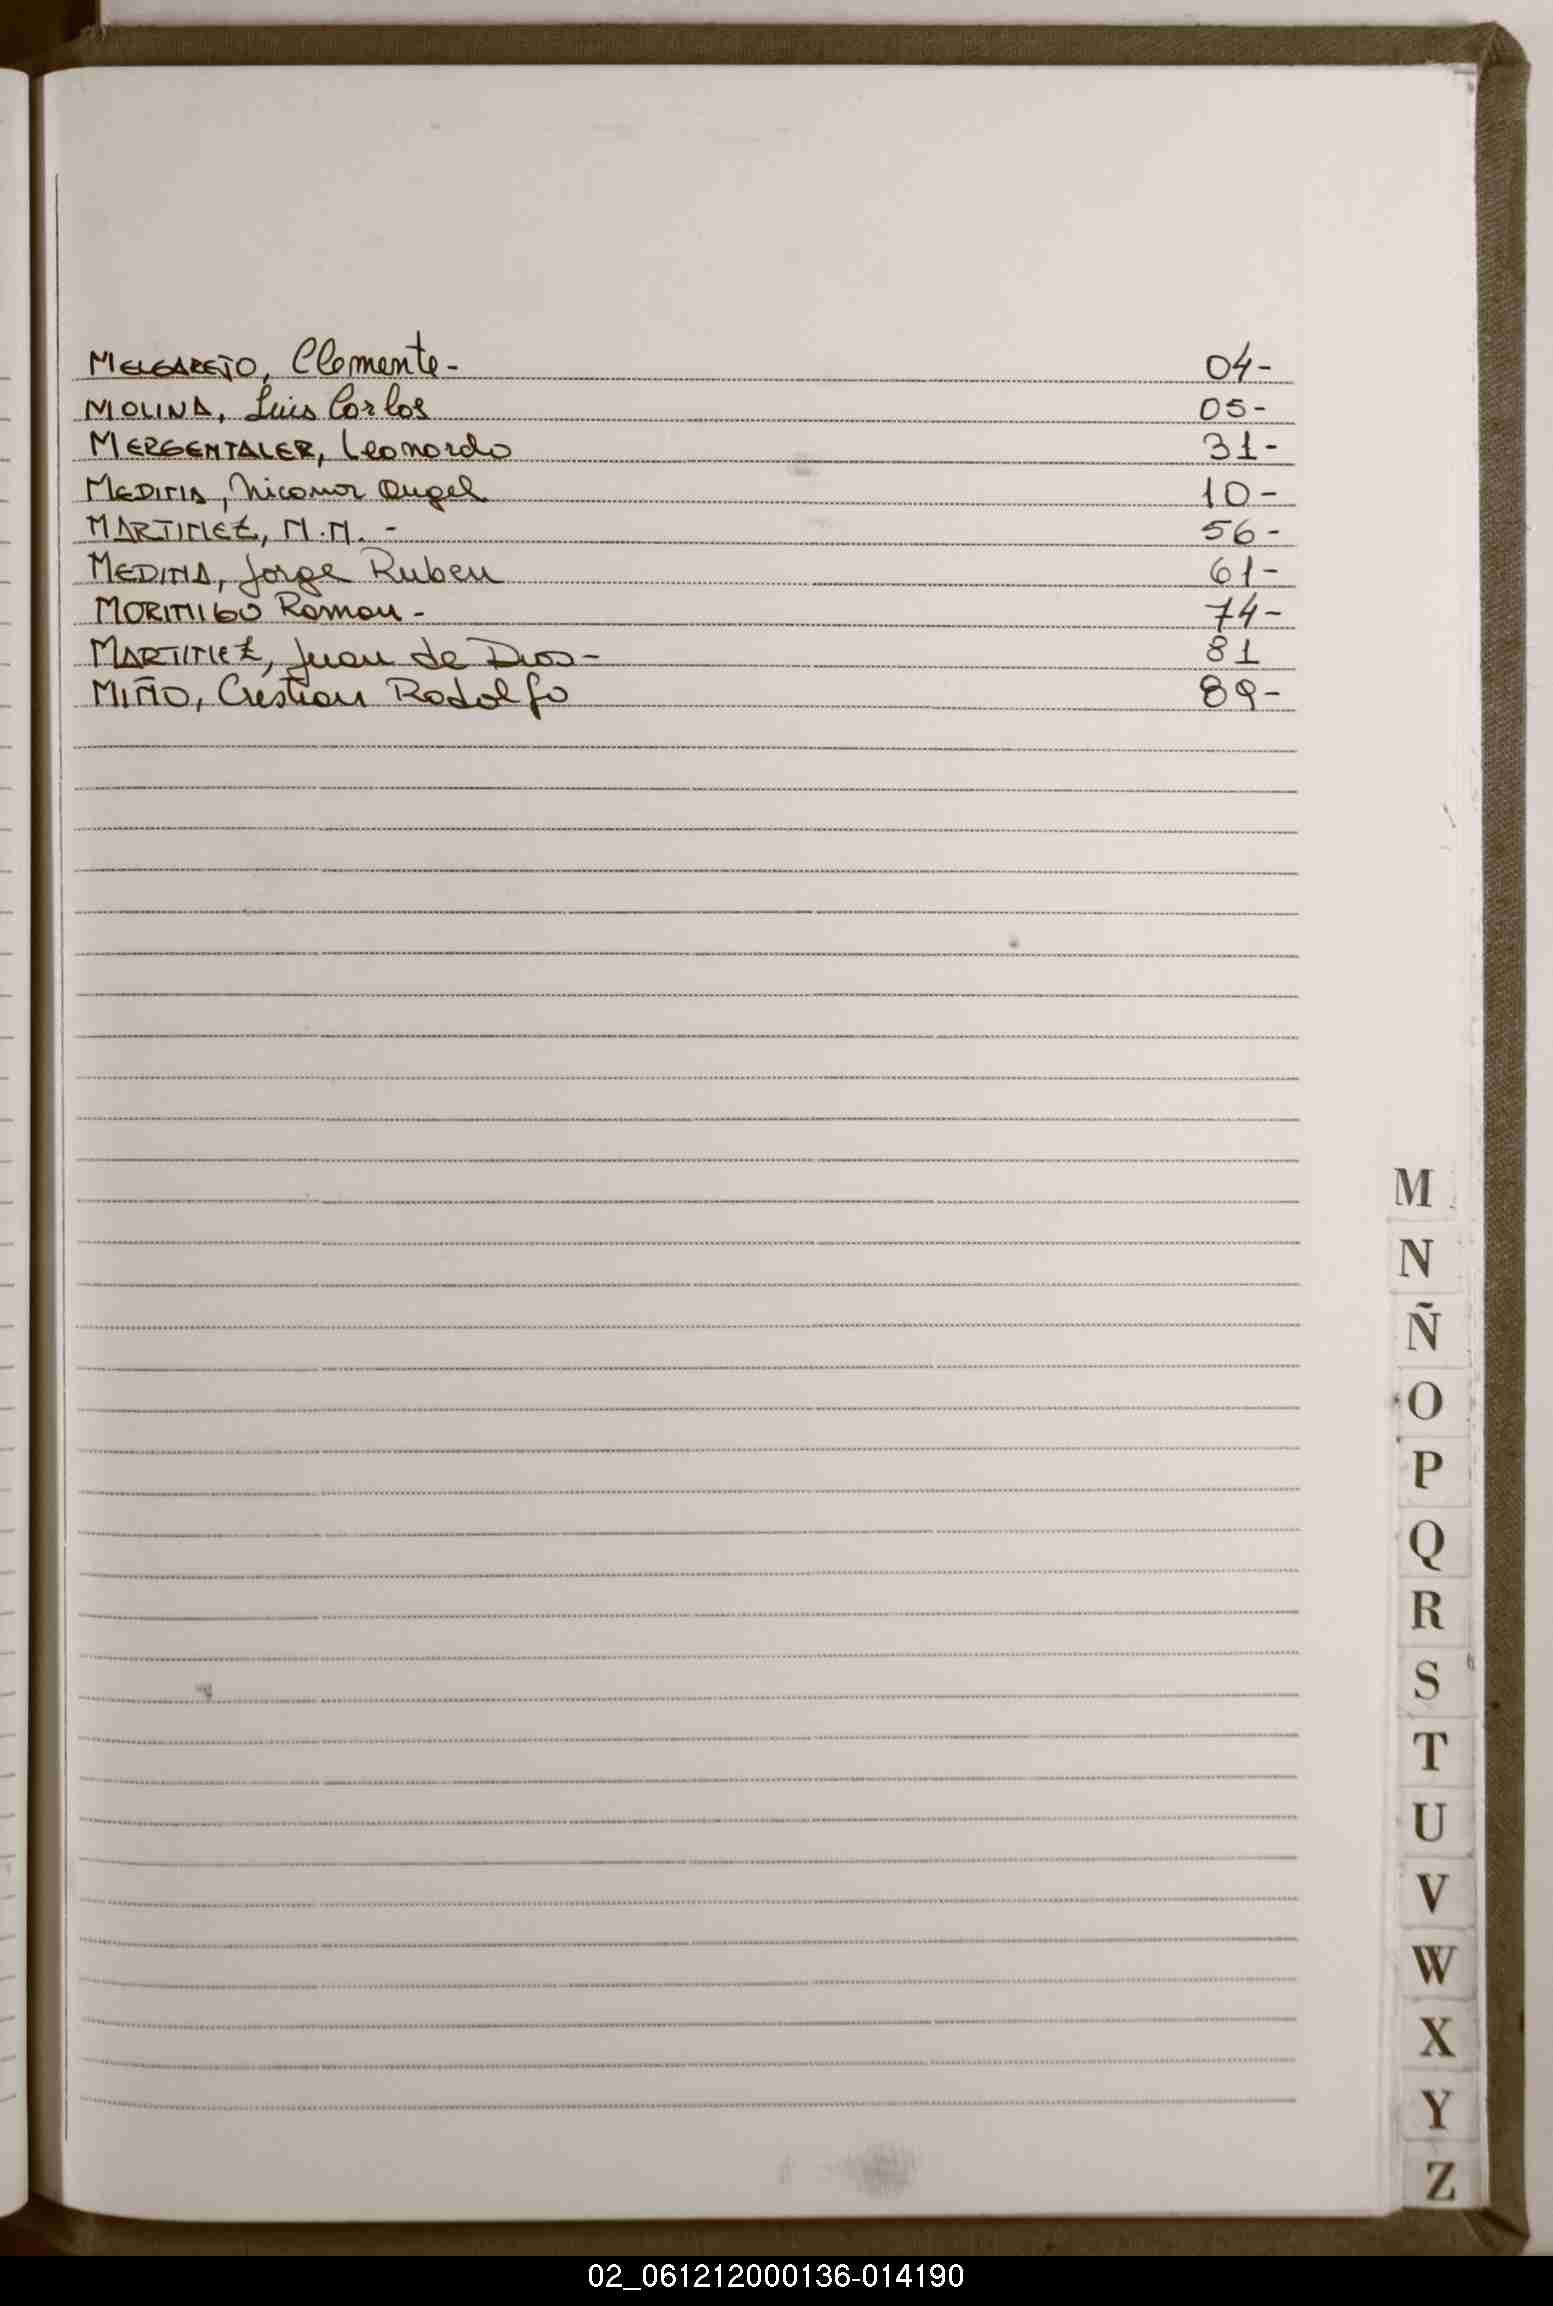 MELGAREJO, Clemente- 04-
MOLINA, Luis Carlos 05-
MERGENTALER, Leonardo 31-
MEDINA, Nicanor Angel 10-
MARTINEZ, M.M. - 56-
MEDINA, Jorge Ruben 61-
MORINIGO Roman- 74-
MARTINEZ, Juan de Dios- 81
MIÑO, Cristian Rodolfo 89-
M
N
Ñ
O
P
Q
R
S
T
U
V
W
X
Y
Z
02_061212000136-014190